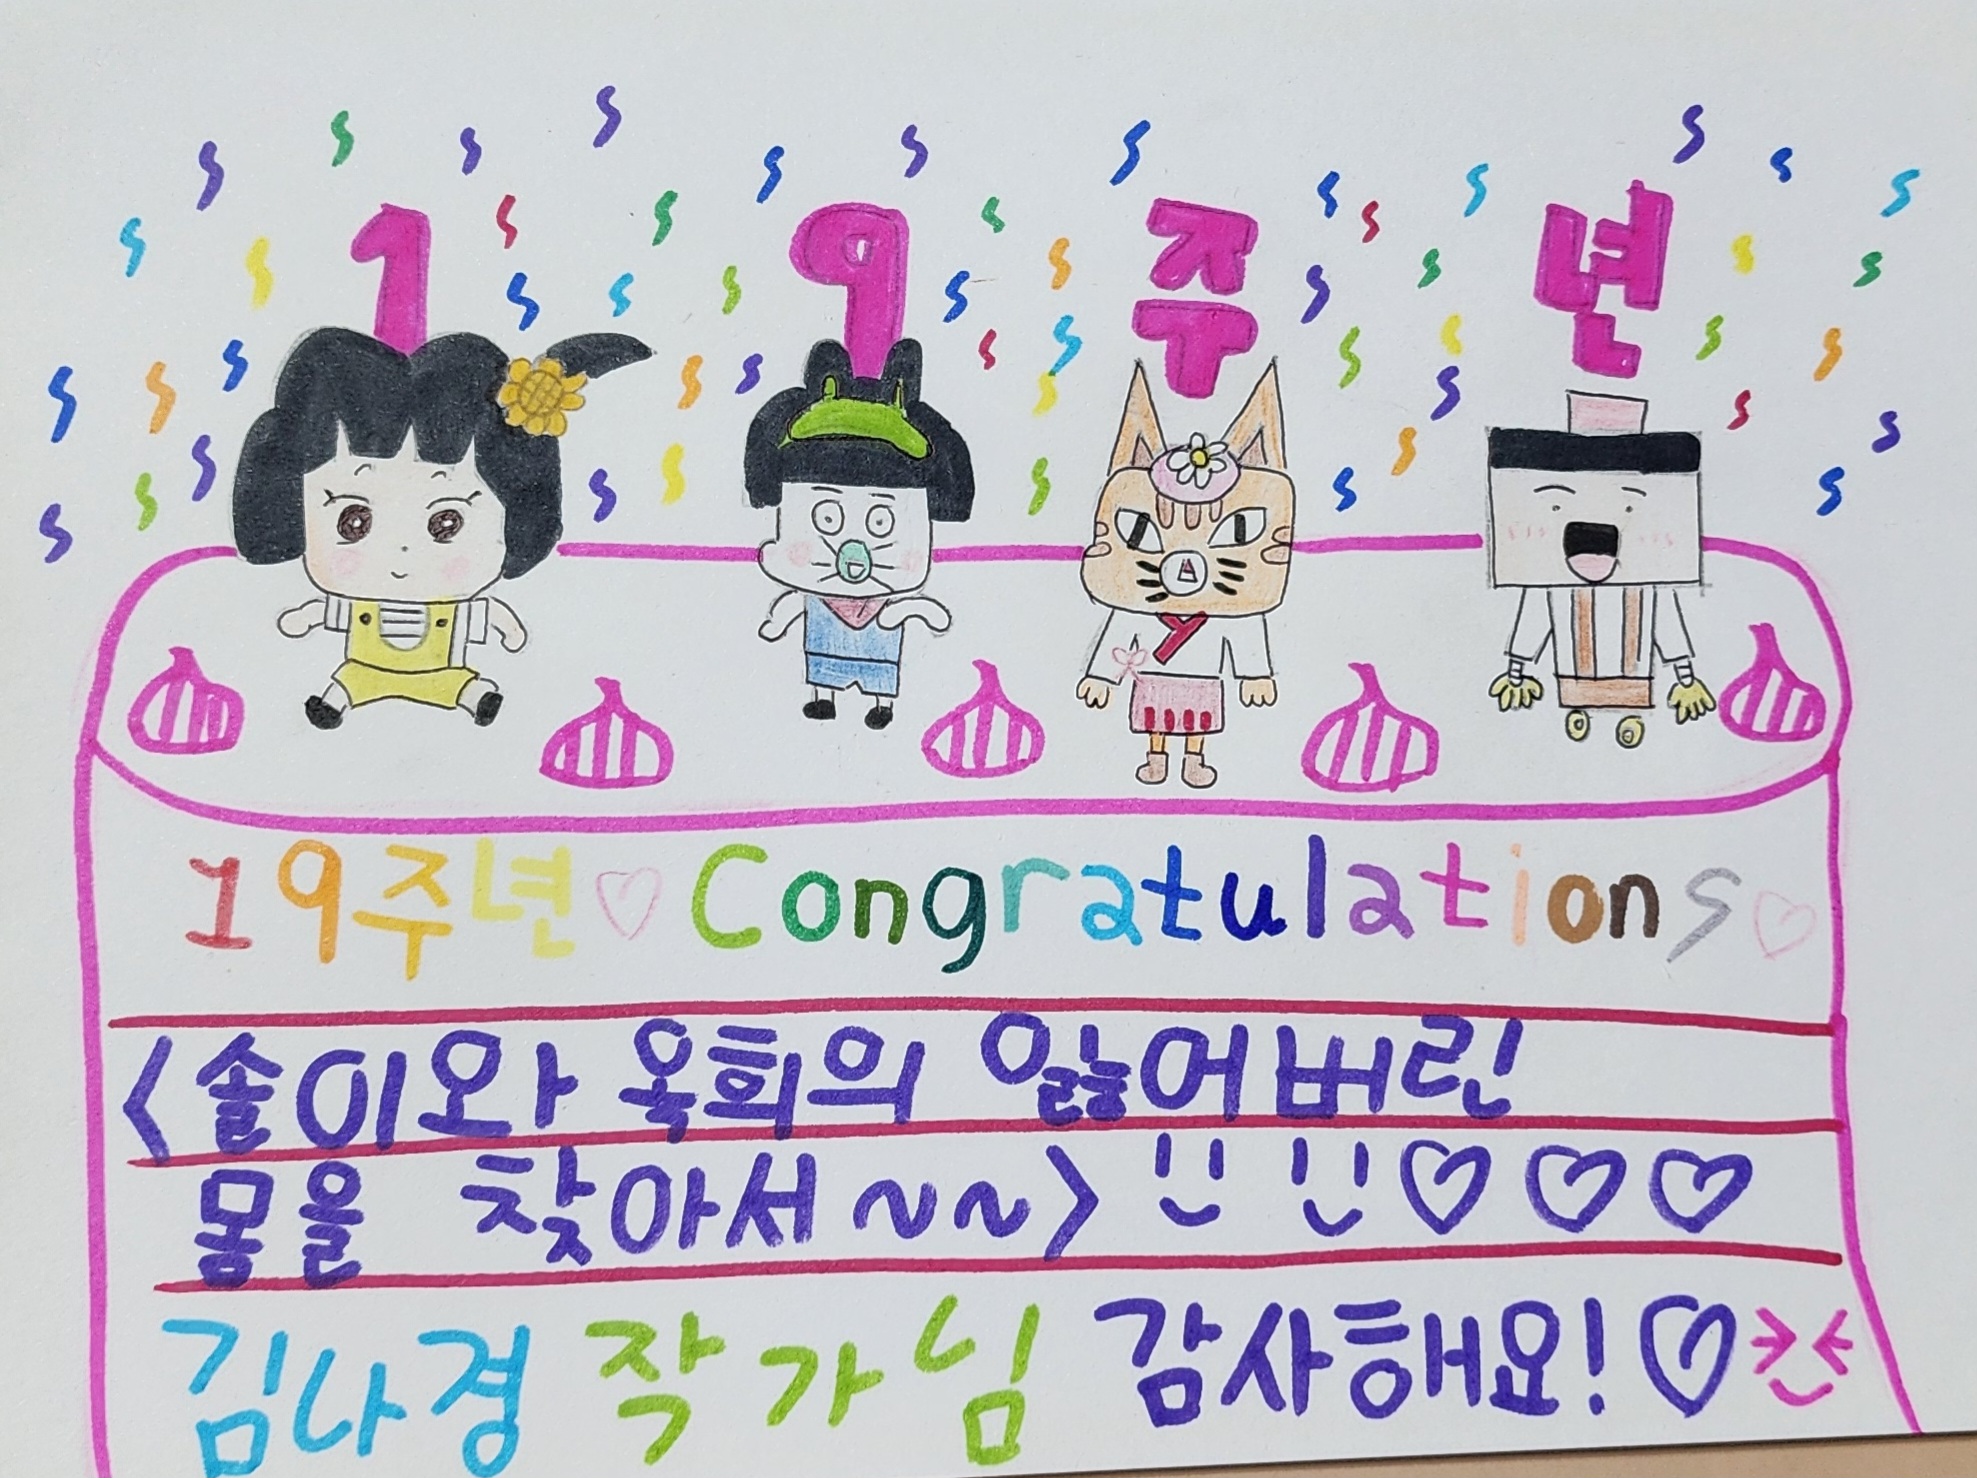 19주년
19주년♡Congratulations♡
<솔이와 욱희의 잃어버린
몽을 찾아서~~>
김나경 작가님 감사해요!♡